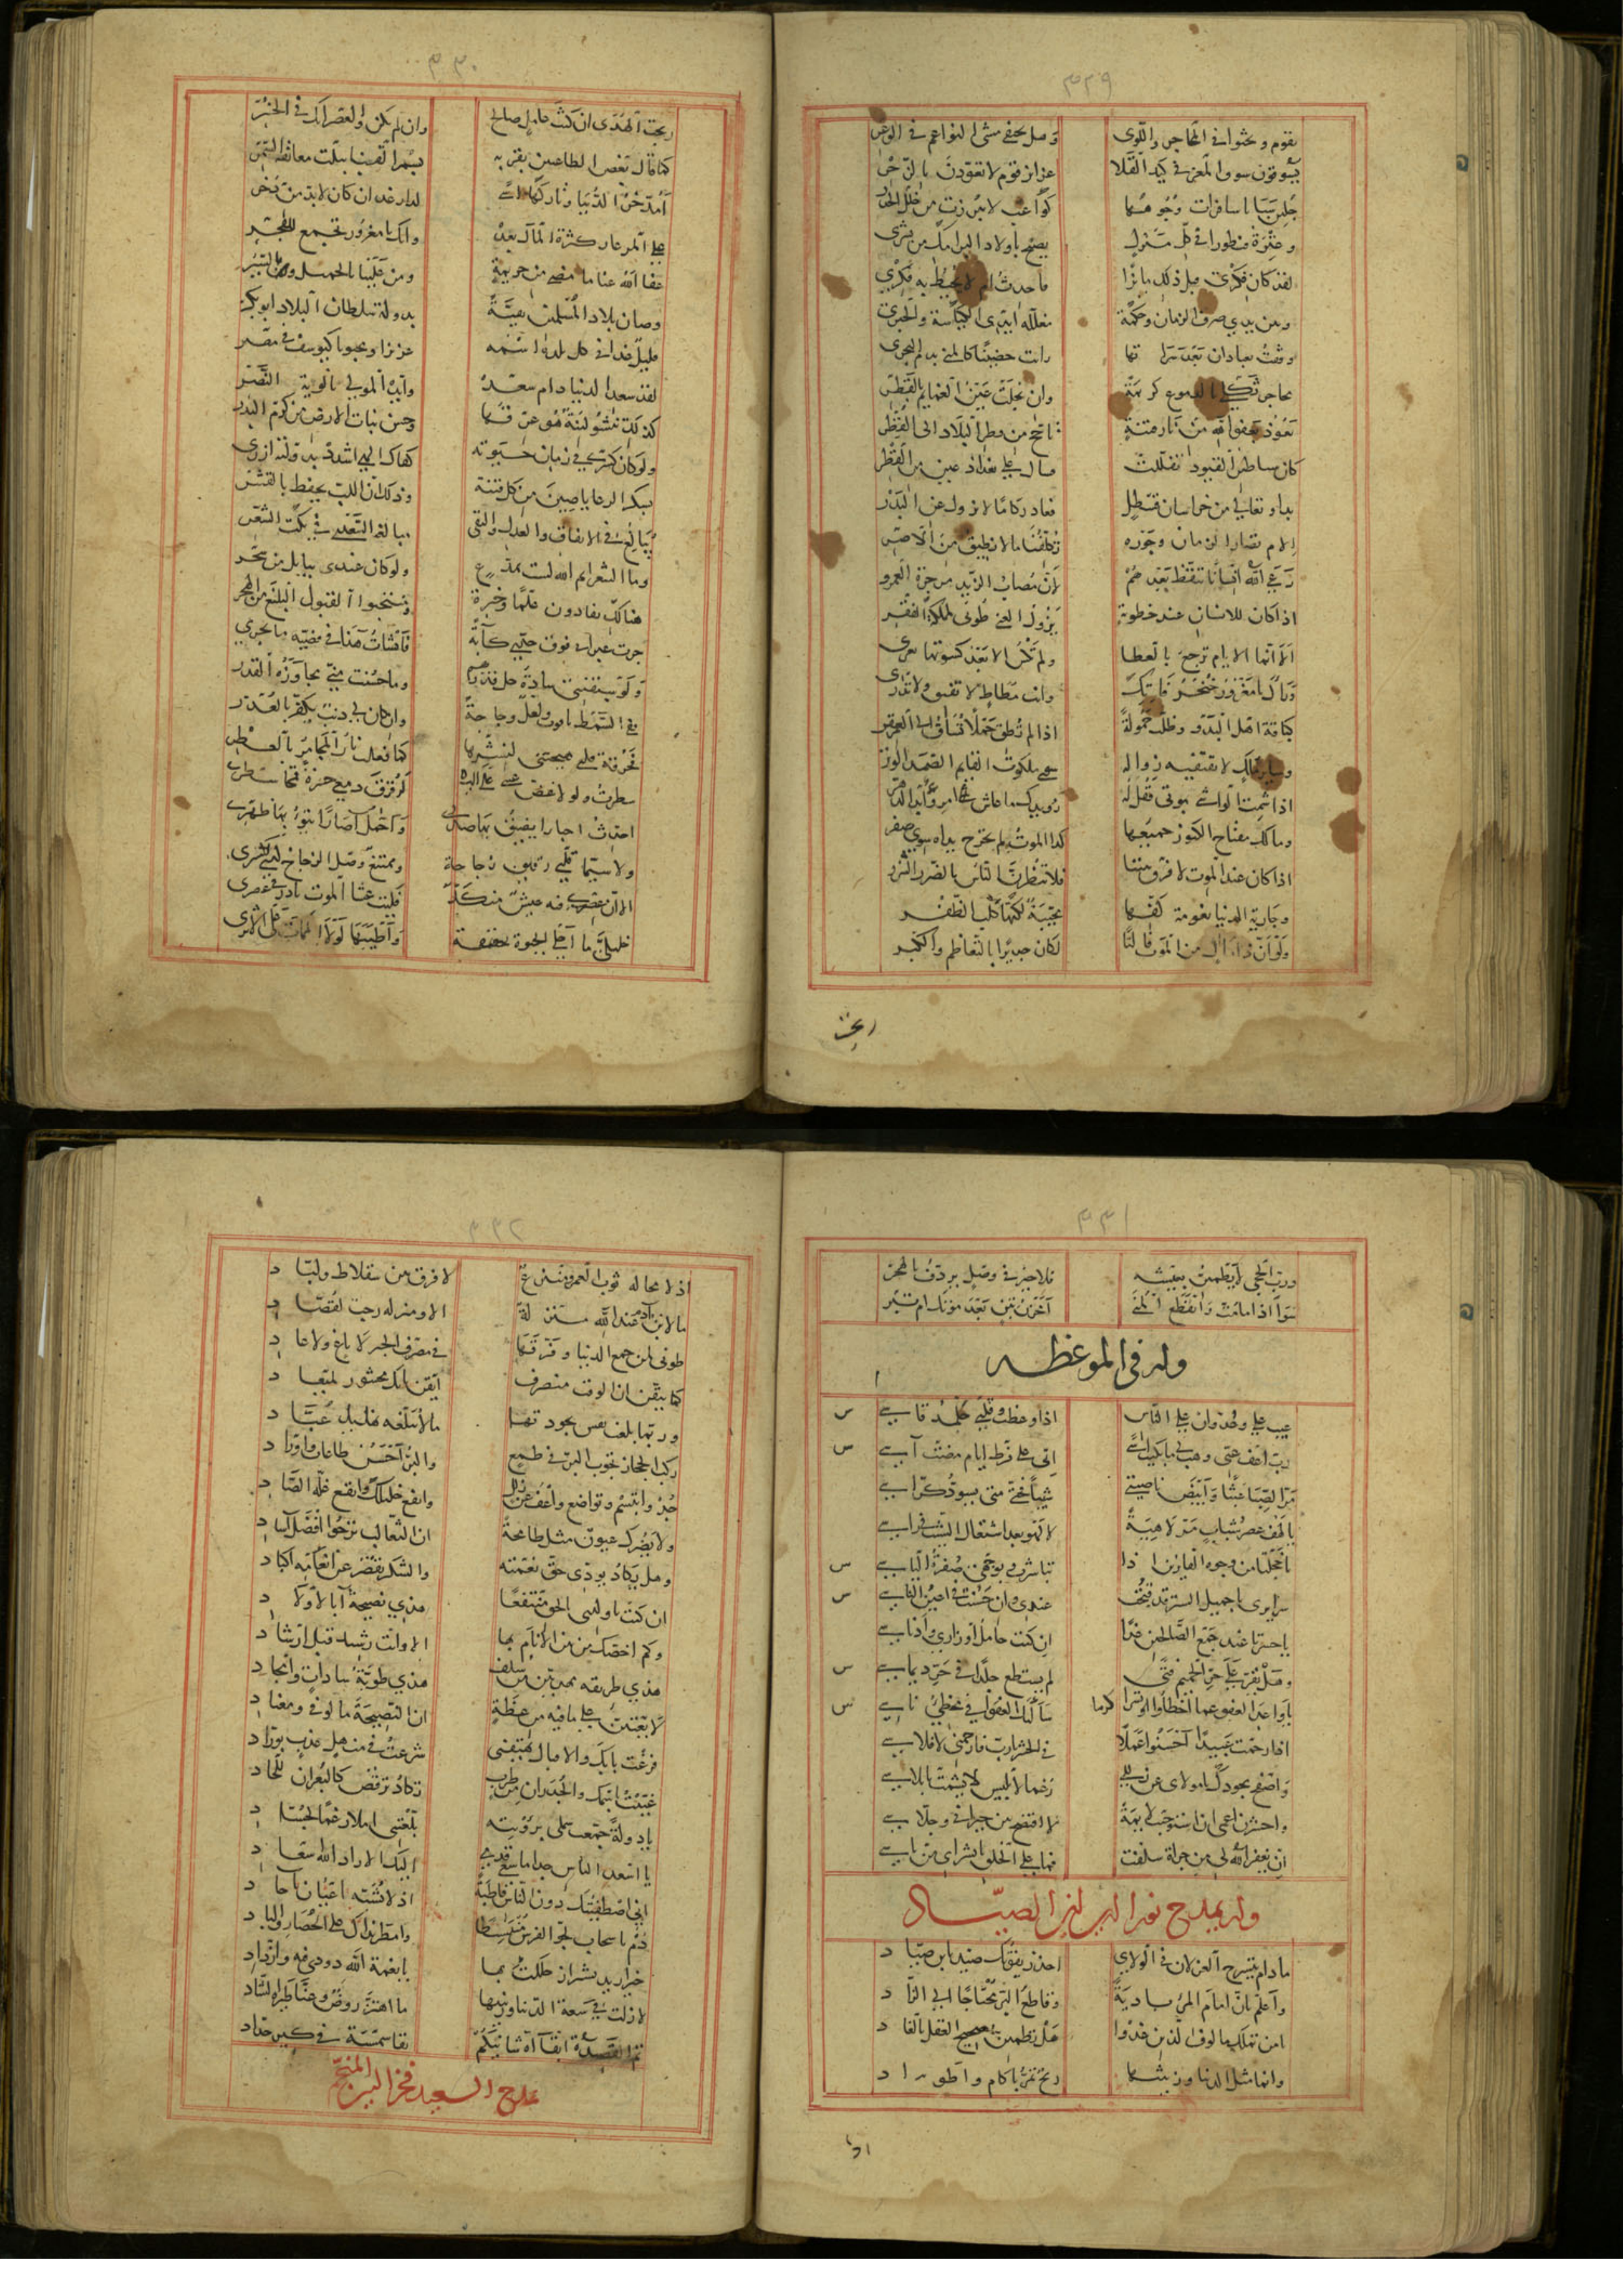 ٣٢٩
يقوم وتحثوا فى المحاجر واللوى وهل يختفى مشى النواعم فى الوعر
يسوقون سوق المعز فى كبد الفلا عزائز قوم لا تعودن بالزجر
جلبن سبايا سافرات وجوهها كواعب لا يبرزن من خلل الخدر
وعترة قنطورا فى كل منزل يصيح باولاد البرامك من يشرى
لقد كان فكرى قبل ذلك مايزا فاحدث امر لا يحيط به فكرى
وبين يدى صرف الزمان وحكمه مغللة ايدى الكياسة والخبر
وقفت بعبادان بعد سراتها رايت خضيبا كالمنى بدم النحر
محاجر ثكلى بالدموع كريمة وان بخلت عين الغمايم بالقطر
نعوذ بعفو الله من نار فتنة تاجج من قطر البلاد الى القطر
كان شياطين القيود تفلتت فسال على بغداذ عين من القطر
بدا وتعالى من خراسان قسطل فعاد ركاما لا يزول عن البدر
الام تصاريف الزمان وجوره تكلفنا ما لا نطيق من الاصر
رعى الله انسانا تيقظ بعدهم لان مصاب الزيد مزجرة العمرو
اذا كان للانسان عند خطوبه يزول الغنى طوبى لمملكة الفقر
الا انما الايام ترجع بالعطا ولم تكس الا بعد كسوتها تعرى
ورآك يا مغرور خنجر فاتك وانت مطاط لا تفيق ولا تدرى
كناقة اهل البدو وظلت حمولة اذا لم تطق حملا تساق الى العقر
وساير ملك لا تقتفيه زواله سوى ملكوت القايم الصمد الوتر
اذا شمت الواشى بموتى فقل له رويدك ما عاش امرؤ ابد الدهر
وما لك مفتاح الكنوز جميعها لدى الموت لم يخرج يداه سوى صفر
اذا كان عند الموت لا فرق بيننا فلا تنظرن الناس بالنظر الشزر
وجارية الدنيا نعومة كفها محببة لكنها كلب الظفر
ولو ان ذا مال من الموت فالتا لكان جديرا بالتعاظم والكبر
ربحت
٣٣٠
ربحت الهدى ان كنت عامل صالح وان لم تكن والعصر انك فى الخسر
كما قال بعض الطاعنين بقربه بسمر القنا نيلت معانقة السمر
امدخر الدنيا وتاركها اسى لدار غد ان كان لا بد من ذخر
على المر عار كثرة المال بعده وانك يا مغرور تجمع للفخر
عفا الله عنا ما مضى من جريمة ومن علينا بالجميل وبالستر
وصان بلاد المسلمين صيانة بدولة سلطان البلاد ابوبكر
مليك غدا فى كل بلدة اسمه عزيزا ومحبوبا كيوسف فى مصر
لقد سعد الدنيا به دام سعده وايده المولى بالوية النصر
كذلك تنشو لينة هو عرقها وحسن نبات الارض من كرم البذر
ولو كان كسرى فى زمان حيوته لقال الهى اشدد بدولته ازرى
بشكر الرعايا صين من كل فتنة وذلك ان اللب يحفظ بالقشر
يبالغ فى الانفاق والعدل والتقى مبالغة السعدى فى نكت الشعر
وما الشعر ايم الله لست بمدع ولو كان عندى ببابل من سحر
هنالك نقادون علما وخبرة ومنتخبوا القول البليغ من الهجر
جرت عبراتى فوق خدى كآبة فانشات هذا فى قضية ما يجرى
ولو سبقتنى سادة جل قدرهم وما حسنت منى مجاوزة القدر
ففى السمط ياقوت ولعل وجاجة وان كان لى ذنب يكفر بالعذر
محرقة قلبى مبيحتى لنشرها كما فعلت نار المجامر بالعطر
سطرت ولولا غض عينى على البكا لرقرق دمعى حزنة فمحا سطرى
احدث اخبارا يضيق بها صدرى واحمل آصارا ينوء بها ظهرى
ولا سيما قلبى رقيق زجاجه وممتنع وصل الزجاج لدى كسرى
الا ان عصرى فيه عيش منكد فليت عشاء الموت بادر فى عصرى
خليلى ما احلى الحيوة حقيقة واطيبها لولا الممات على الاثر
٣٣١
ورب الحجى لا يطمئن بعيشه فلا خير فى وصل يردف بالهجر
سوآ اذا ما مت وانقطع المنى أمخزن تبن بعد موتك ام تبر
وله فى الموعظه
عيب على وعدوان على الناس اذا وعظت وقلبى جلمد قاسى
رب اعف عنى وهب لى ما بكيت اسى انى على فرط ايام مضت آسى
مر الصبا عبثا وابيض ناصيتى شيبا فحتى متى يسود كراسى
يا لهف عصر شباب مر لاهية لا لهو بعد اشتعال الشيب فى راسى
يا خجلتا من وجوه الفايزين اذا تباشروا بوجهى صفرة الياس
سرايرى يا جميل الستر قد قبحت عندى وان حسنت فى اعين الناس
يا حسرتا عند جمع الصالحين غدا ان كنت حامل اوزارى وادناسى
وهل يقر على حر الحميم فتى لم يستطع جلدا فى حر ديماس
يا واعد العفو عما اخطأوا كرما سألتك العفو انى مخطئ ناسى
اذا رحمت عبيدا احسنوا عملا فى الحشر يا رب فارحمنى لافلاسى
واصفح بجودك يا مولاى عن زللى رغما لابليس لا يشمت بابلاسى
واحشرنى اعمى ان استوجبت لايمة لا افتضح بين جيرانى وجلاسى
ان يغفر الله لى من جرأة سلفت فما على الخلق بالبشراى من باس
وله يمدح نور الدين بن الصياد
ما دام ينسرح الغزلان فى الوادى احذر يفوتك صيد يا بن صياد
واعلم بان امام المرء بادية وقاطع البر محتاج الى الزاد
يا من تملك مالوف الذين غدوا هل يطمئن صحيح العقل بالغاد
وانما مثل الدنيا وزينتها ريح تمر بآكام واطواد
اذ لا
٣٣٢
اذ لا محالة ثوب العمر منتزع لا فرق بين سقلاط ولباد
ما لابن آدم عند الله منزلة الا ومنزله رحب لقصاد
طوبى لمن جمع الدنيا وفرقها فى مصرف الخير لا باغ ولا عاد
كما تيقن ان الوقت منصرف ايقن بانك محشور لميعاد
وربما بلغت نفس بجودتها ما لا تبلغه تهليل عباد
ركب الحجاز تجوب البر فى طمع والبر احسن طاعات واوراد
جد وابتسم وتواضع واعف عن زلل وانفع خليلك وانقع غلة الصاد
ولا يضرك عيون منك طامحة ان الثعالب ترجوا افضل آساد
وهل يكاد يؤدى حق نعمته والشكر يقصر عن انعامه البادى
ان كنت يا ولدى بالحق منتفعا هذى نصيحة آباء لاولاد
وكم اخصك من بين الانام بها الا وانت رشيد قبل ارشاد
هذى طريقة مهدين من سلف هذى طوية سادات وامجاد
لا تعتبن على ما فيه من عظة ان النصيحة مالوفى ومعتاد
قرعت بابك والاقبال يهتف بى شرعت فى منهل عذب لوراد
غنيت باسمك والجدران من طرب تكاد ترقص كالبعران للحادى
يا دولة جمعت شملى برؤيته بلغتنى املا رغما لحساد
يا اسعد الناس جدا ما سعى قدمى اليك الا اراد الله اسعاد
انى اصطفيتك دون الناس قاطبة اذ لا تشبه اعيان بآحاد
دم يا سحاب لجو الفرس منبسطا وامطر نداك على الحضار والباد
خير اريد بشيراز حللت بها يا نعمة الله دومى فيه وازداد
لا زلت فى سعة الدنيا ونعمتها ما اهتز روض وغنى طيره الشاد
تم القصيدة ابقى الله شانيكم بقا سمسمة فى كير حداد
يمدح السعيد فخر الدين المنجم